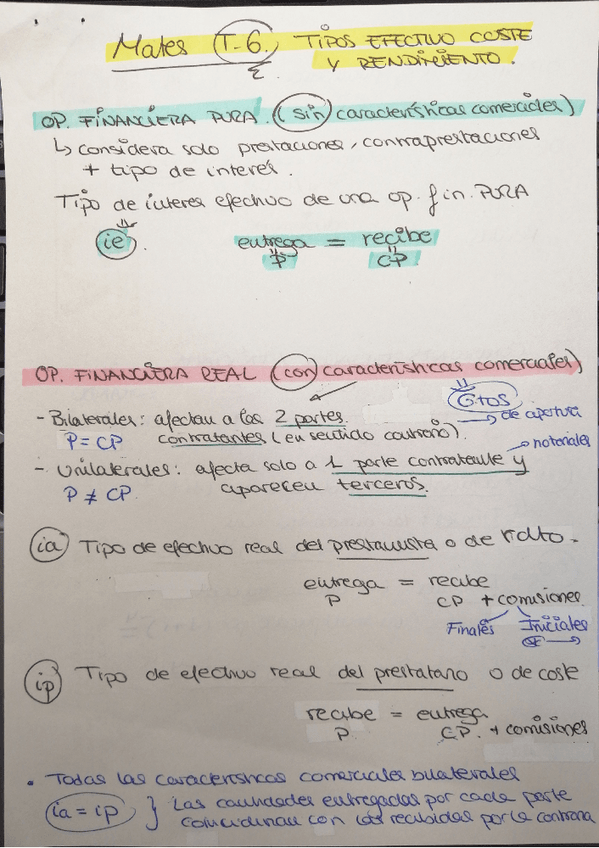 Mates T-6. TIPOS EFECTIVO COSTE
Y RENDIMIENTO.
OP. FINANCIERA PURA. (sin) características comerciales)
↳ considera solo prestaciones, contraprestaciones
+ tipo de interés.
Tipo de interés efectivo de una op. fin. PURA
ie. entrega = recibe
P CP
OP. FINANCIERA REAL (con) características comerciales)
Gtos
- Bilaterales: afectan a las 2 partes → de apertura
P = CP contratantes (en sentido contrario). → notariales
- Unilaterales: afecta solo a 1 parte contratante y
P ≠ CP aparecen terceros.
ia Tipo de efectivo real del prestamista o de rdto.
entrega = recibe
P CP + comisiones
Finales Iniciales
ip Tipo de efectivo real del prestatario o de coste
recibe = entrega
P. CP. + comisiones
• Todas las características comerciales bilaterales
ia = ip } Las cantidades entregadas por cada parte
coincidirían con las recibidas por la contraria